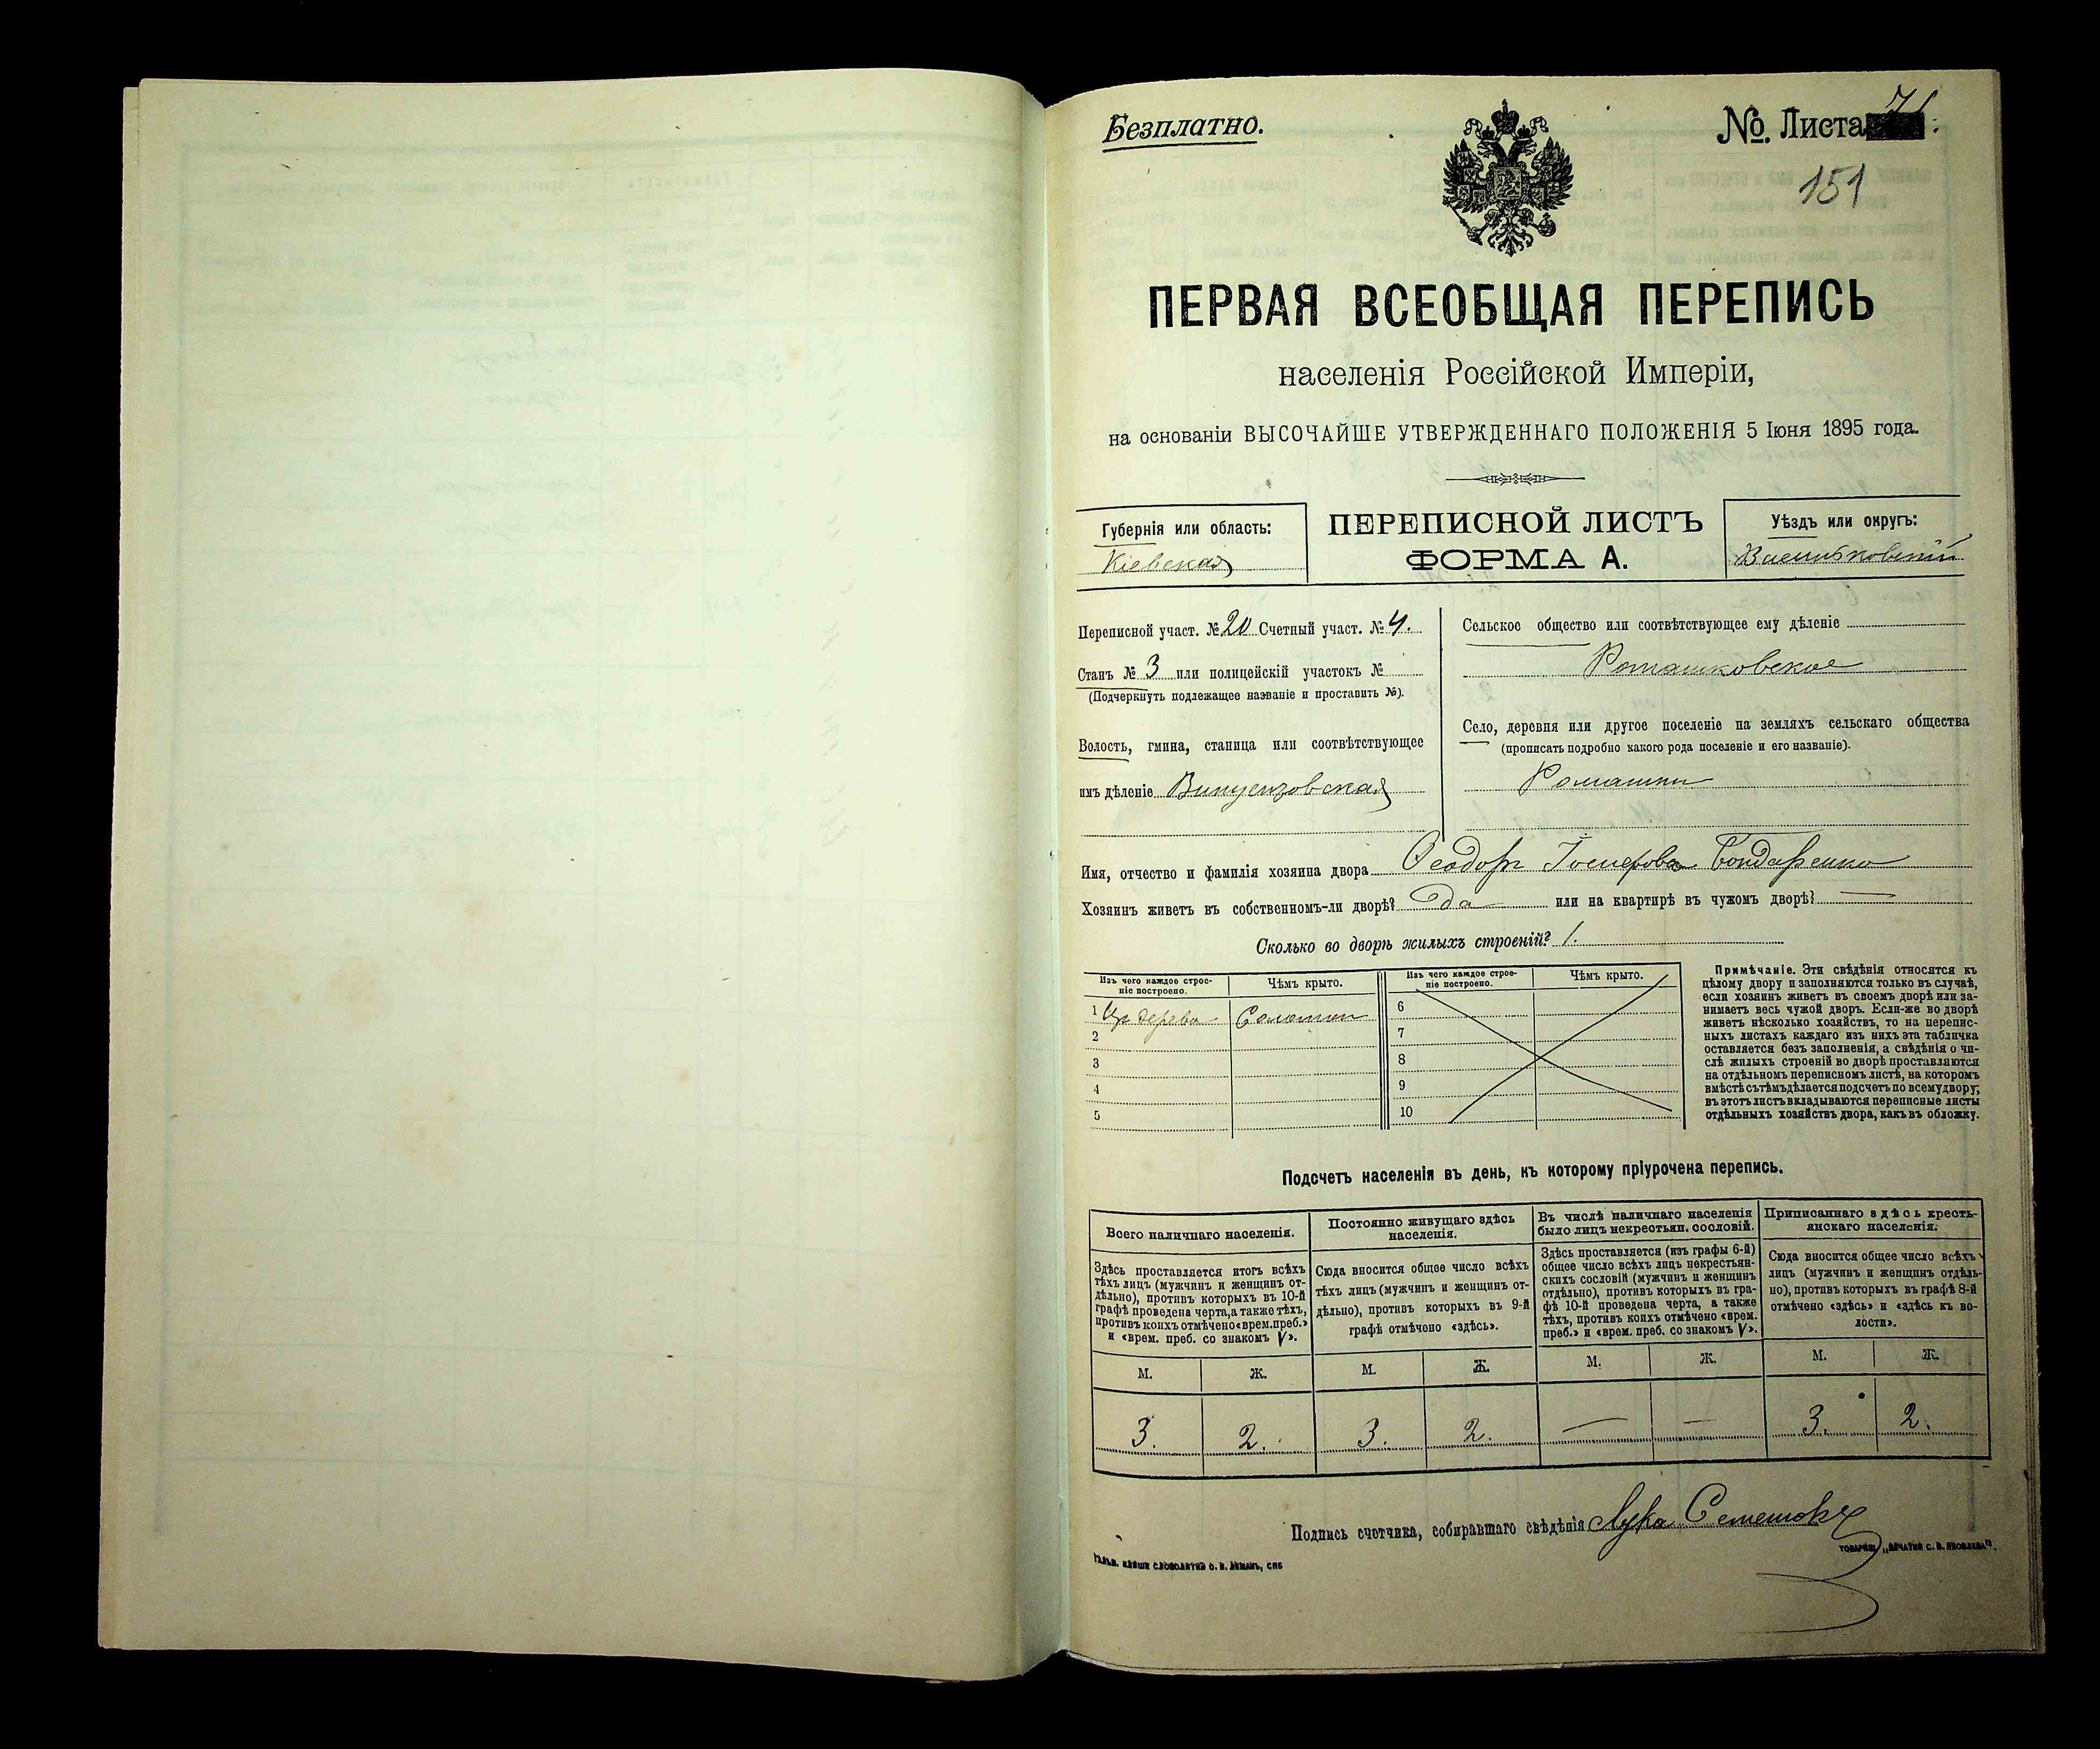 Безплатно.
№. Листа 71.
151
ПЕРВАЯ ВСЕОБЩАЯ ПЕРЕПИСЬ
населенія Россійской Имперіи,
на основаніи ВЫСОЧАЙШЕ УТВЕРЖДЕННАГО ПОЛОЖЕНІЯ 5 Іюня 1895 года.
Губернія или область:
Кіевская
ПЕРЕПИСНОЙ ЛИСТЪ
ФОРМА А.
Уѣздъ или округъ:
Васильковскій
Переписной участ. № 20 Счетный участ. № 4.
Станъ № 3 или полицейскій участокъ №
(Подчеркнуть подлежащее названіе и проставить №).
Волость, гмина, станица или соотвѣтствующее
имъ дѣленіе Винцентовская
Сельское общество или соотвѣтствующее ему дѣленіе
Ромашковское
Село, деревня или другое поселеніе на земляхъ сельскаго общества
(прописать подробно какого рода поселеніе и его названіе).
Ромашки
Имя, отчество и фамилія хозяина двора Ѳеодоръ Іосифовъ Бондаренко
Хозяинъ живетъ въ собственномъ-ли дворѣ? да или на квартирѣ въ чужомъ дворѣ? —
Сколько во дворѣ жилыхъ строеній? 1.
Изъ чего каждое строе-
ніе построено.
Чѣмъ крыто.
1 Изъ дерева Соломой
2
3
4
5
Изъ чего каждое строе-
ніе построено.
Чѣмъ крыто.
6
7
8
9
10
Примѣчаніе. Эти свѣдѣнія относятся къ
цѣлому двору и заполняются только въ случаѣ,
если хозяинъ живетъ въ своемъ дворѣ или за-
нимаетъ весь чужой дворъ. Если-же во дворѣ
живетъ нѣсколько хозяйствъ, то на перепис-
ныхъ листахъ каждаго изъ нихъ эта табличка
оставляется безъ заполненія, а свѣдѣнія о чи-
слѣ жилыхъ строеній во дворѣ проставляются
на отдѣльномъ переписномъ листѣ, на которомъ
вмѣстѣ съ тѣмъ дѣлается подсчетъ по всему двору;
въ этотъ листъ вкладываются переписные листы
отдѣльныхъ хозяйствъ двора, какъ въ обложку.
Подсчетъ населенія въ день, къ которому пріурочена перепись.
Всего наличнаго населенія.
Здѣсь проставляется итогъ всѣхъ
тѣхъ лицъ (мужчинъ и женщинъ от-
дѣльно), противъ которыхъ въ 10-й
графѣ проведена черта, а также тѣхъ,
противъ коихъ отмѣчено «врем. преб.»
и «врем. преб. со знакомъ V».
М. Ж.
3. 2.
Постоянно живущаго здѣсь
населенія.
Сюда вносится общее число всѣхъ
тѣхъ лицъ (мужчинъ и женщинъ от-
дѣльно), противъ которыхъ въ 9-й
графѣ отмѣчено «здѣсь».
М. Ж.
3. 2.
Въ числѣ наличнаго населенія
было лицъ некрестьян. сословій.
Здѣсь проставляется (изъ графы 6-й)
общее число всѣхъ лицъ некрестьян-
скихъ сословій (мужчинъ и женщинъ
отдѣльно), противъ которыхъ въ гра-
фѣ 10-й проведена черта, а также
тѣхъ, противъ коихъ отмѣчено «врем.
преб.» и «врем. преб. со знакомъ V».
М. Ж.
— —
Приписаннаго здѣсь кресть-
янскаго населенія.
Сюда вносится общее число всѣхъ
лицъ (мужчинъ и женщинъ отдѣль-
но), противъ которыхъ въ графѣ 8-й
отмѣчено «здѣсь» и «здѣсь къ во-
лости».
М. Ж.
3. 2.
Подпись счетчика, собиравшаго свѣдѣнія Лука
СЛОВОЛИТНЯ О. И. ЛЕМАНЪ, СПБ
ТОВАРИЩ. „ПЕЧАТНЯ С. П. ЯКОВЛЕВА".